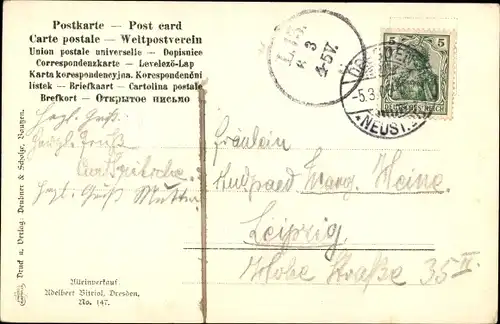 Postkarte — Post card
Carte postale — Weltpostverein
Union postale universelle — Dopisnice
Correspondenzkarte — Levelező-Lap
Karta korespondencyjna. Korespondenční
lístek — Briefkaart — Cartolina postale
Brefkort — Открытое письмо
5 5
DEUTSCHES REICH
DRESDEN
-5.3.
NEUST.
3
4-5V.
Herzl. Gruß
Herzl. Gruß Mutter
Fräulein
Marg. Heine
Leipzig
Hohe Straße 35 II
Druck u. Verlag: Deubner & Scholze, Bautzen.
Alleinverkauf
Adelbert Vitriol, Dresden.
No. 147.